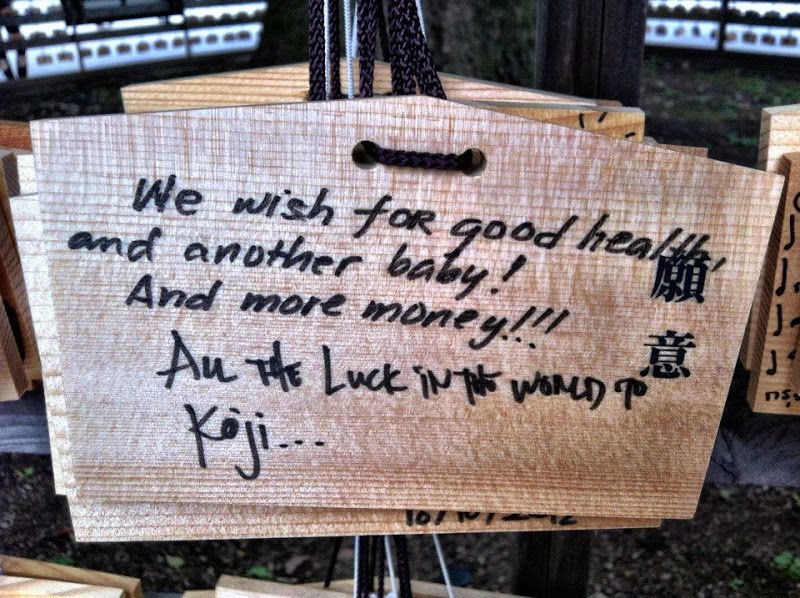 We wish for good health,
and another baby!
And more money!!!
All the Luck in the world to
Koji...
願意
10/10/2012